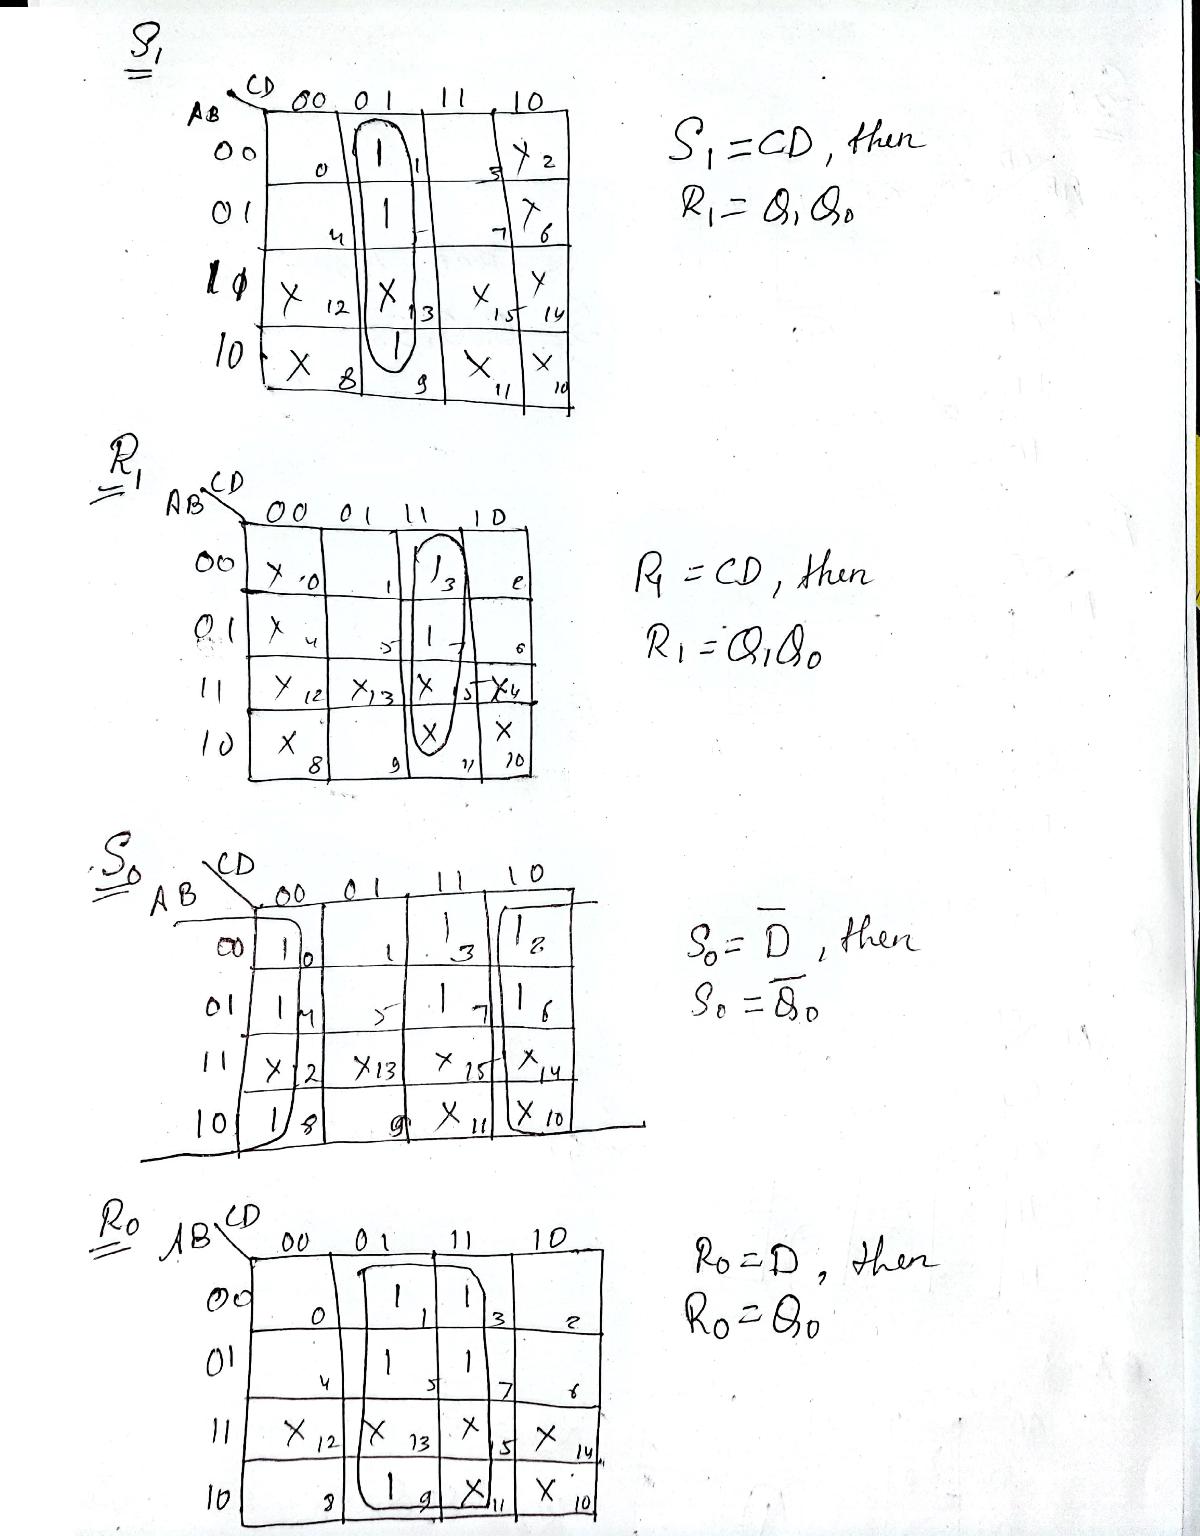 S₁
CD
AB 00 01 11 10
00 0 1 1 3 X 2
01 4 1 5 7 X 6
10 X 12 X 13 X 15 X 14
10 X 8 1 9 X 11 X 10
S₁ = CD, then
R₁ = Q₁ Q₀
R₁
CD
AB 00 01 11 10
00 X 0 1 1 3 2
01 X 4 5 1 7 6
11 X 12 X 13 X 15 X 14
10 X 8 9 X 11 X 10
R₁ = CD, then
R₁ = Q₁Q₀
S₀
CD
AB 00 01 11 10
00 1 0 1 1 3 1 2
01 1 4 5 1 7 1 6
11 X 12 X 13 X 15 X 14
10 1 8 9 X 11 X 10
S₀ = D̅, then
S₀ = Q̅₀
R₀
CD
AB 00 01 11 10
00 0 1 1 1 3 2
01 4 1 5 1 7 6
11 X 12 X 13 X 15 X 14
10 8 1 9 X 11 X 10
R₀ = D, then
R₀ = Q₀